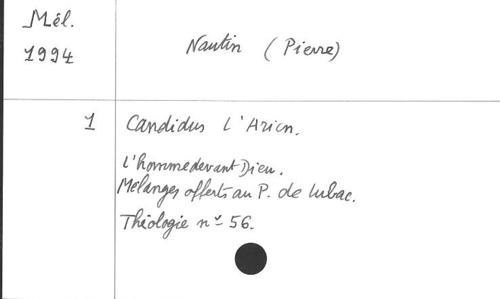 Mél.
1994
Nautin (Pierre)
1 Candidus l'Arien.
L'homme devant Dieu.
Mélanges offerts au P. de Lubac.
Théologie nº 56.